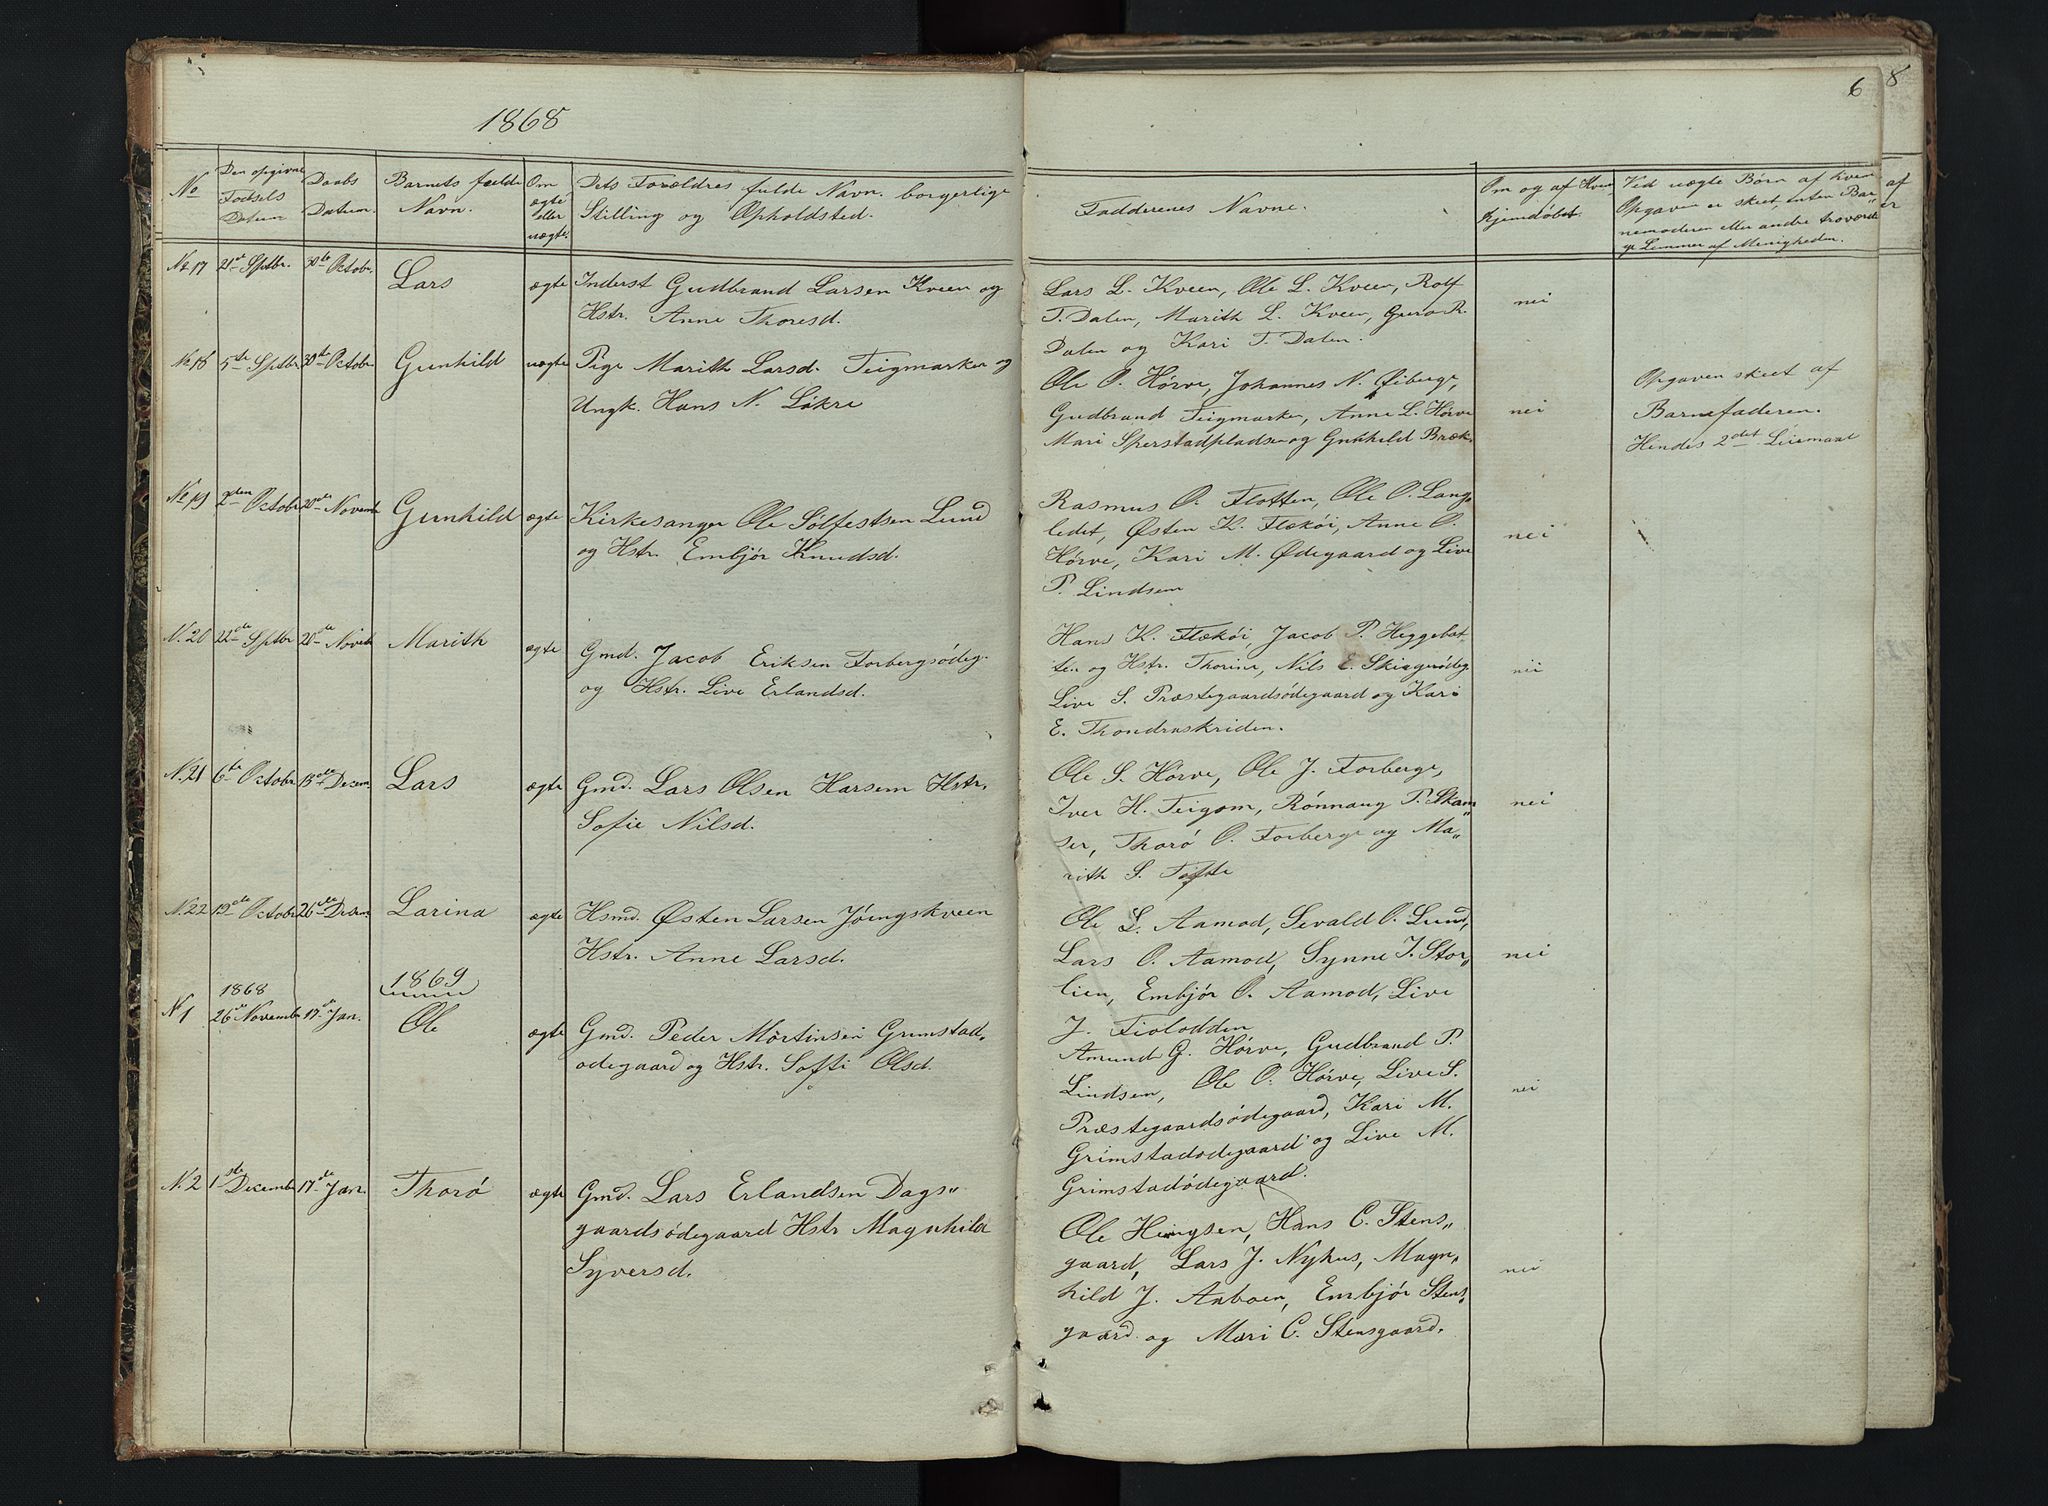 1868
6
8
No
Den opgivne Fødsels Datum
Daabs Datum.
Barnets fulde Navn.
Om ægte eller uægte.
Dets Forældres fulde Navn. borgerlige Stilling og Opholdsted.
Faddernes Navne.
Om og af Hvem hjemdøbt.
Ved uægte Børn af hvem Opgaven er skeet, enten Bar„
nemoderen eller andre troværdi
ge Lemmer af Menigheden.
No 17 21de Sptbr. 30te Octobr. Lars ægte Inderst Gudbrand Larsen Kveen og
Hstr. Anne Thoresd.
Lars L. Kveen, Ole L. Kveen, Rolf
T. Dalen, Marith L. Kveen, Guro R.
Dalen og Kari T. Dalen.
nei
No 18 5te Sptbr 30te Octobr Gunhild uægte Pige Marith Larsd. Teigmarken og
Ungk. Hans N. Løkre
Ole O. Hørve, Johannes N. Øiberge,
Gudbrand Teigmarken, Anne L. Hørve
Mari Sperstadpladsen og Gunhild Bræk.
nei
Opgaven skeet af
Barnefaderen.
Hendes 2det Leiemaal
No 19 2den Octobr 20de Novemb Gunhild ægte Kirkesanger Ole Sølfestsen Lund
og Hstr. Embjør Knudsd.
Rasmus O. Flotten, Ole O. Lang„
ledet, Østen K. Flækøi, Anne O.
Hørve, Kari M. Ødegaard og Live
P. Lindsem
nei
N. 20 22de Sptbr 20de Novemb Marith ægte Gmd. Jacob Eriksen Forbergsødeg.
og Hstr. Live Erlandsd.
Hans K. Flækøi, Jacob P. Heggebot„
ten og Hstr. Thorine, Nils E. Skiagerødeg
Live S. Præstegaardsødegaard og Kari
E. Thondraskriden.
nei
N. 21 6te Octobr 13de Decem. Lars ægte Gmd. Lars Olsen Harsem Hstr.
Sofie Nilsd.
Ole S. Hørve, Ole J. Forberge,
Iver H. Teigom, Rønnaug P. Skam„
ser, Thorø O. Forberge og Ma„
rith S. Tofte
nei
N. 22 19de Octobr 26de Decem. Larina ægte Hsmd. Østen Larsen Jøingskveen
Hstr. Anne Larsd.
Ole L. Aamod, Sevald O. Lund,
Lars O. Aamod, Synne J. Stor„
lien, Embjør O. Aamod, Live
J. Fiolodden
nei
1869
1868
N 1 26de Novembr 17de Jan. Ole ægte Gmd. Peder Mørtinsen Grimstad„
odegaard og Hstr. Softi Olsd.
Amund G. Hørve, Gudbrand P.
Lindsem, Ole O. Hørve, Live S.
Præstegaardsødegaard, Kari M.
Grimstadodegaard og Live M.
Grimstadødegaard.
nei
N. 2 1ste Decembr 17de Jan. Thorø ægte Gmd. Lars Erlandsen Dags„
gaardsødegaard Hstr Magnhild
Syversd.
Ole Hingsen, Hans C. Stens„
gaard, Lars J. Nyhus, Magn„
hild J. Anboen, Embjør Stens„
gaard og Mari C. Stensgaard.
nei